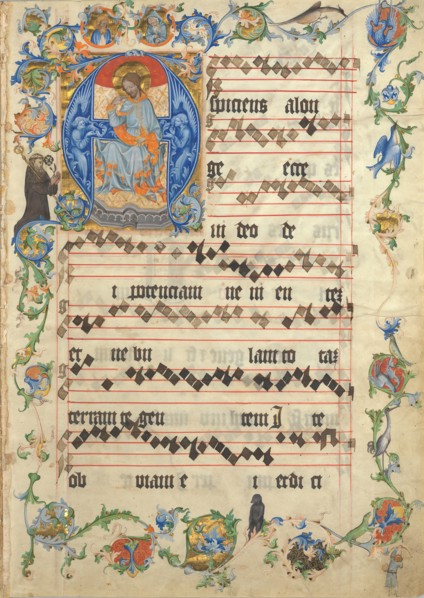 Aspiciens alon
ge ecce
ui deo de
i potenciam ue ni en tez
et ne bu lam to taz
terram te gen tem I te
ob uiam e i et di ci